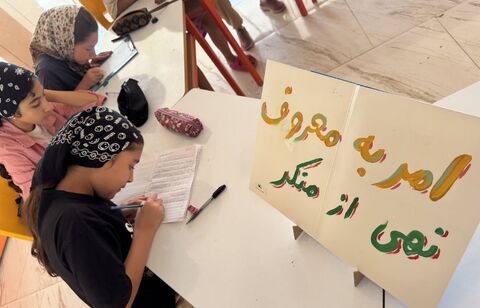 امر به معروف
نهی از منکر